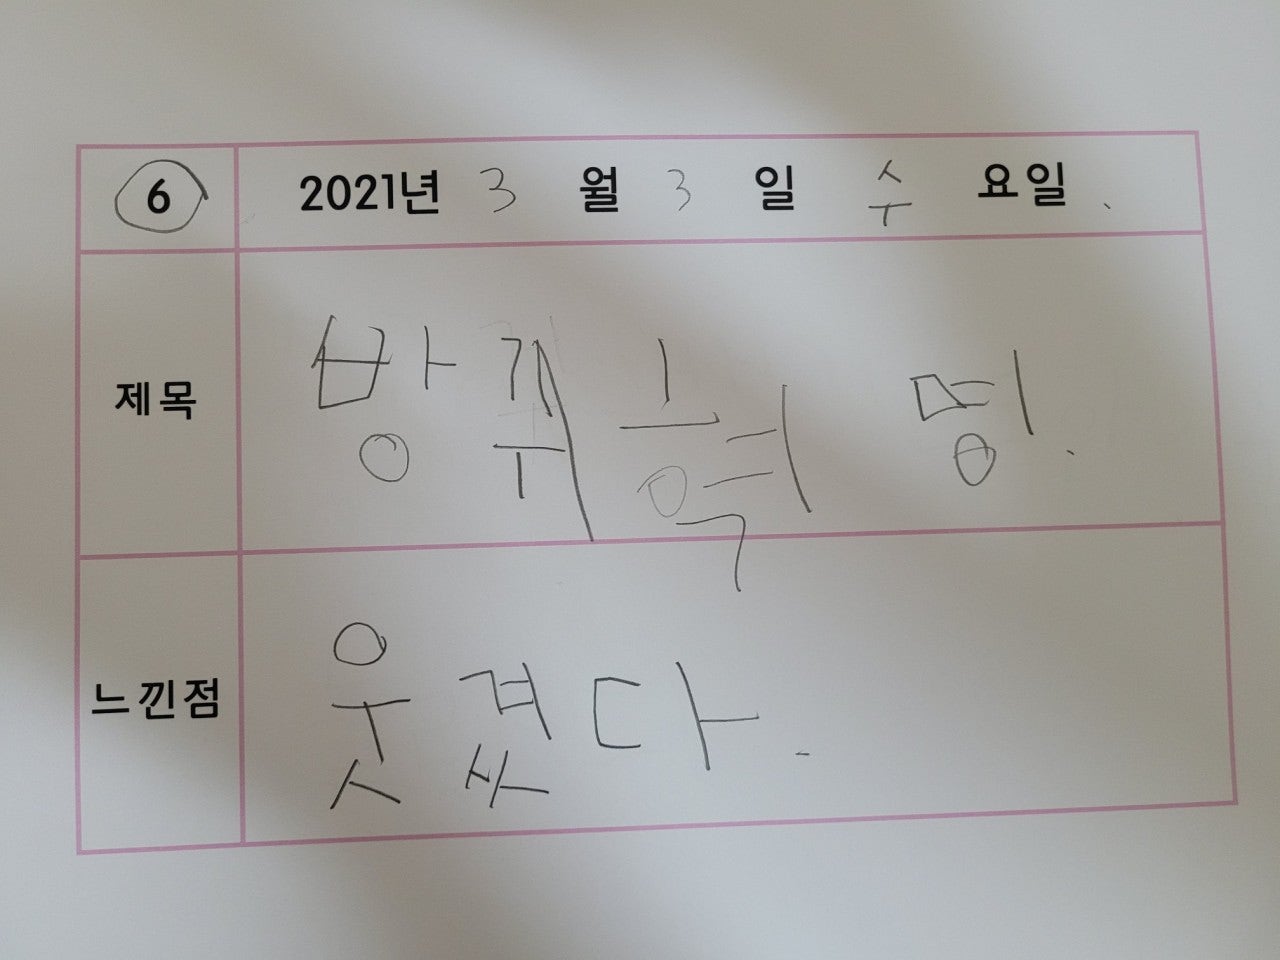 6 2021년 3 월 3 일 수 요일.
제목 방귀 혁명.
느낀점 웃겼다.